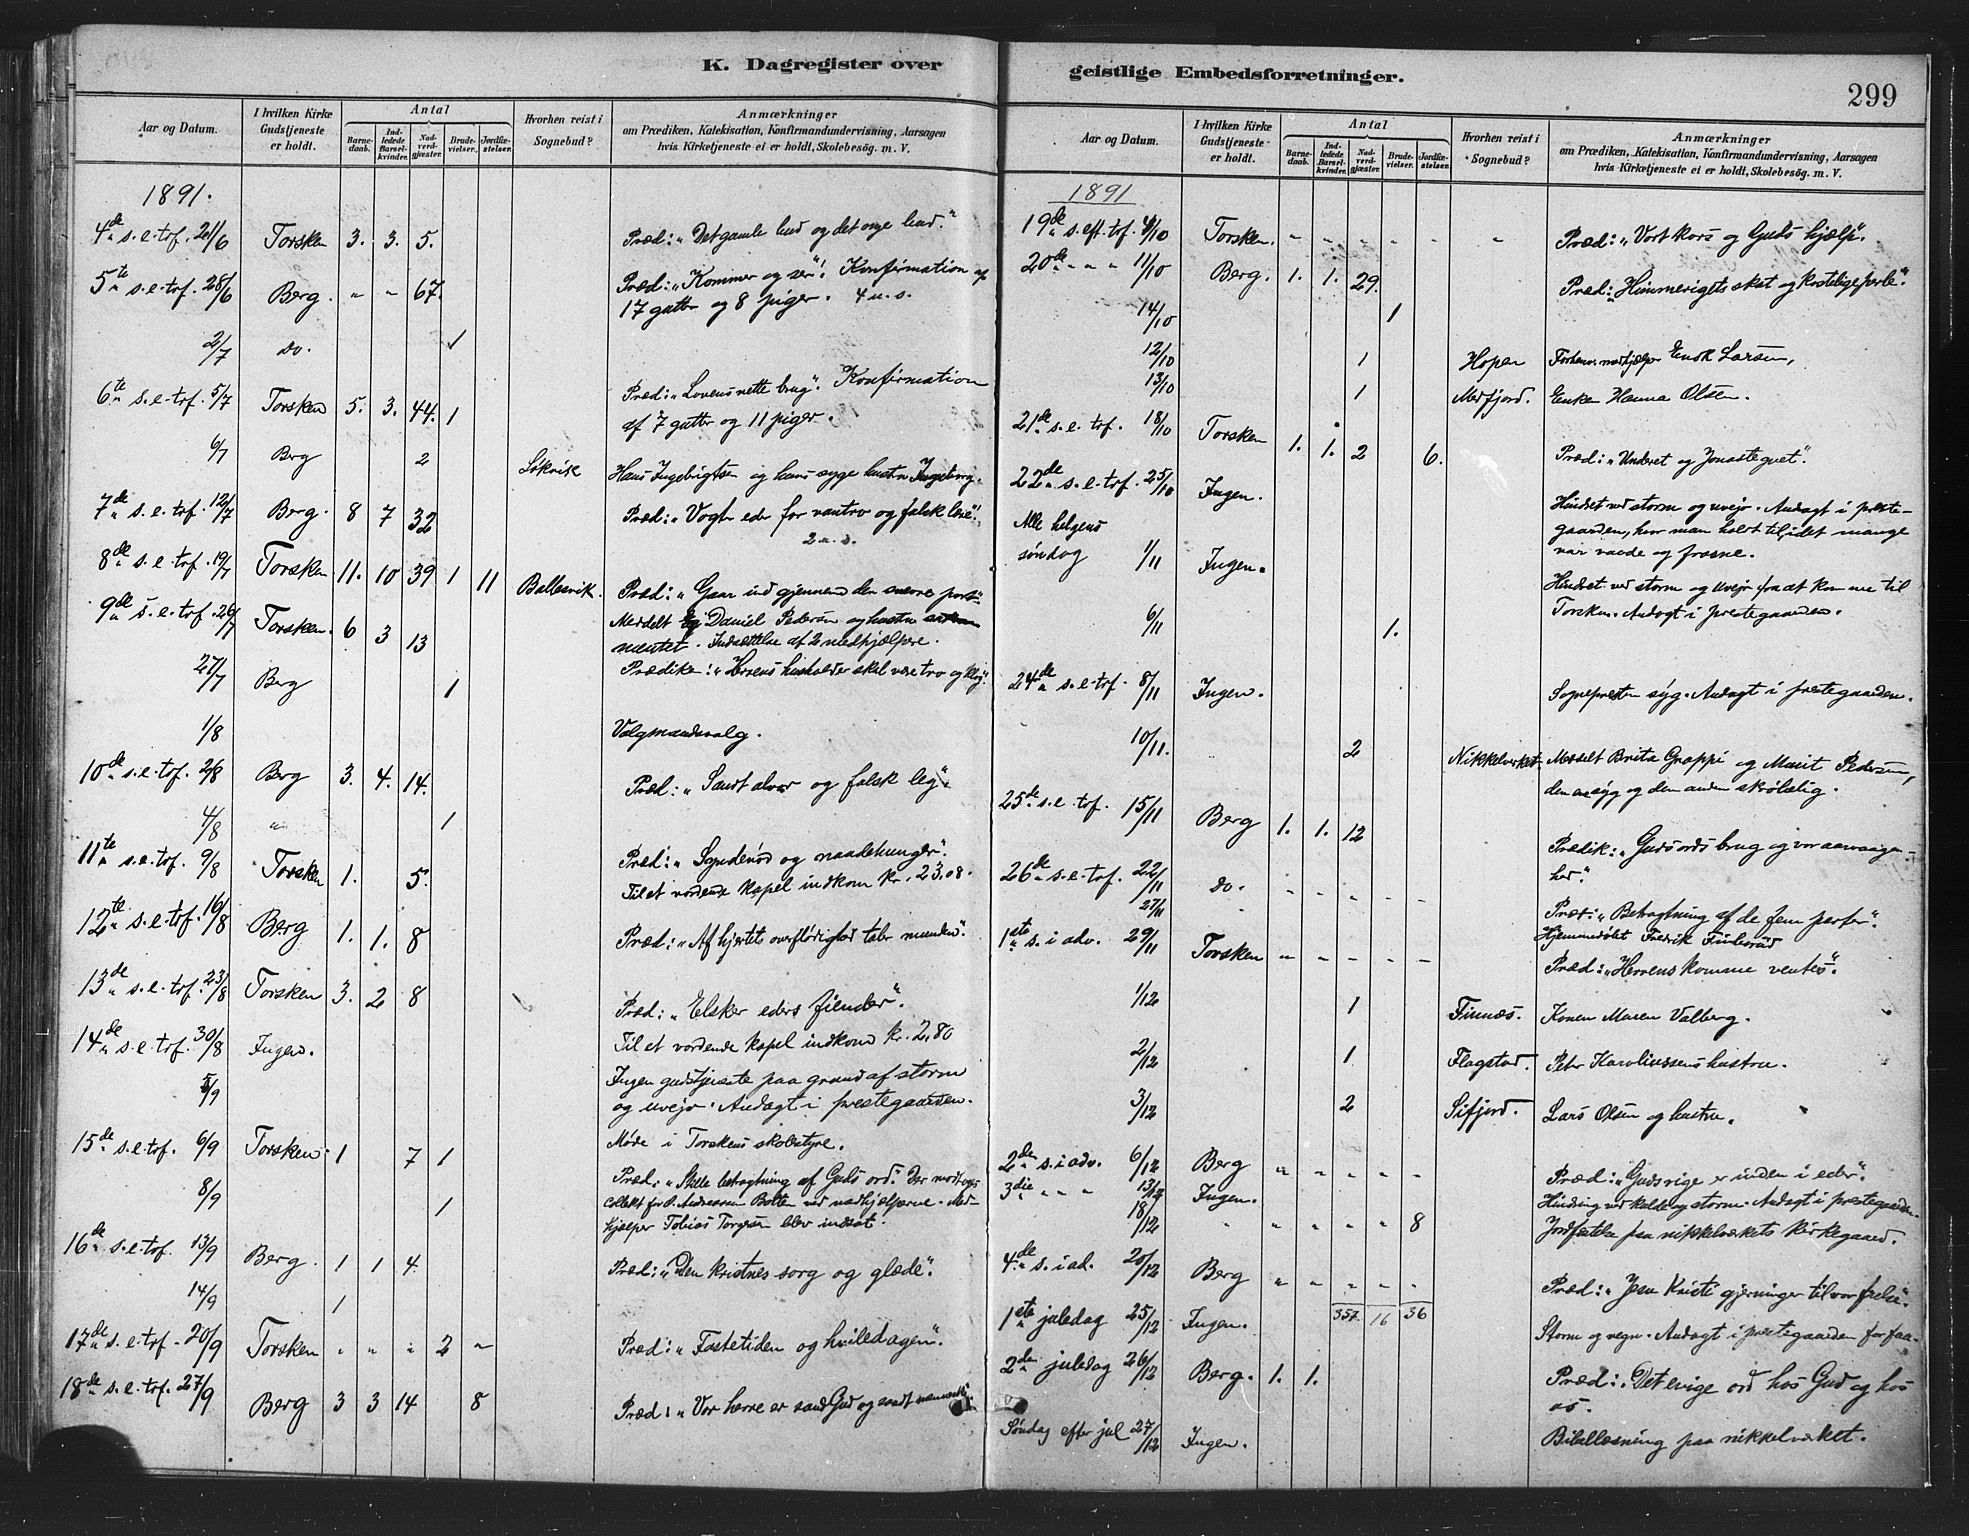 K. Dagregister over
Aar og Datum.
I hvilken Kirke Gudstjeneste er holdt.
Antal
Barnedaab.
Indledede Barselkvinder.
Nadverdgjæster.
Brudevielser.
Jordfæstelser.
Hvorhen reist i Sognebud?
Anmærkninger
om Prædiken, Katekisation, Konfirmandundervisning, Aarsagen
hvis Kirketjeneste ei er holdt, Skolebesøg. m. V.
1891.
4de s.e.trf. 21/6 Torsken 3. 3. 5. Præd: „Det gamle bud og det nye bud."
5te s.e.trf. 28/6 Berg. " " 67. Præd: „Kommer og ser"! Konfirmation af
17 gutter og 8 piger. 4 u.s.
2/7 do. 1
6te s.e.trf. 5/7 Torsken 5. 3. 44. 1 Præd: „Lovens rette brug". Konfirmation
af 7 gutter og 11 piger.
6/7 Berg 2 Hans Ingebrigtsen og hans syge hustru Ingeborg.
7de s.e.trf. 12/7 Berg. 8 7 32 Præd: „Vogt eder for vantro og falsk lære"!
2 u. s.
8de s.e.trf. 19/7 Torsken 11. 10 39 1 11 Ballesvik. Præd: „Gaar ind gjennem den snevre port"
Meddelt Daniel Pedersen og hustru
9de s.e.trf. 26/7 Torsken. 6 3 13 Indsættelse af 2 medhjælpere.
Prædiken: „Herrens husholder skal være tro og klog".
27/7 Berg 1
1/8 Valgmandsvalg.
10de s.e.trf. 2/8 Berg 3. 4. 14. Præd: „Sandt alvor og falsk leg".
4/8 " 1
11te s.e.trf. 9/8 Torsken 1. 5. Præd: „Syndenød og naadehunger".
Til et vordende kapel indkom kr. 23.08.
12te s.e.trf. 16/8 Berg 1. 1. 8 Præd: „Af hjertets overflødighed taler munden".
13de s.e.trf. 23/8 Torsken 3. 2 8 Præd: „Elsker eders fiender".
Til et vordende kapel indkom kr. 2,80
14de s.e.trf. 30/8 Ingen. Ingen gudstjeneste paa grund af storm
og uveir. Andagt i prestegaarden.
5/9 Møde i Torskens skolestyre.
15de s.e.trf. 6/9 Torsken. 1 7 1 Præd: „Stille betragtning af Guds ord".
8/9 1 Medhjælper Tobias Torgersen blev indsat.
16de s.e.trf. 13/9 Berg. 1 1 4. Præd: „Den kristnes sorg og glæde".
14/9 1
17de s.e.trf. 20/9 Torsken " " " 2 " Præd: „Fastetiden og hviledagen".
18de s.e.trf. 27/9 Berg 3 3 14 8 Præd: „Vor herre er sand Gud og sandt menneske"
geistlige Embedsforretninger.
299
Aar og Datum.
I hvilken Kirke Gudstjeneste er holdt.
Antal
Barnedaab.
Indledede Barselkvinder.
Nadverdgjæster.
Brudevielser.
Jordfæstelser.
Hvorhen reist i Sognebud?
Anmærkninger
om Prædiken, Katekisation, Konfirmandundervisning, Aarsagen
hvis Kirketjeneste ei er holdt, Skolebesøg. m. V.
1891
19de s.eft.trf. 4/10 Torsken. " " " " " " Præd: „Vort kors og Guds hjælp".
20de " " " 11/10 Berg. 1. 1. 29. Præd: „Himmerigets skat og kostelige perle".
14/10 1
12/10 1 Hopen Forhenv. medhjælper Enok Larsen,
13/10 1 Mefjord. Enken Hanna Olsen.
21de s.e.trf. 18/10 Torsken 1. 1. 2 6. Præd: „Underet og Jonastegnet".
22de s.e.trf. 25/10 Ingen. Hindret ved storm og uveir. Andagt i preste-
gaarden, hvor man holdt til, idet mange
var vaade og frosne.
Alle helgens
søndag 1/11 Ingen. Hindret ved storm og uveir fra at komme til
Torsken. Andagt i prestegaarden.
6/11 1.
24de s.e.trf. 8/11 Ingen. Sognepresten syg. Andagt i prestegaarden.
10/11. 2 Nikkelverket. Meddelt Brita Grappi og Marit Pedersen,
den ene syg og den anden skrøbelig.
25de s.e.trf. 15/11 Berg 1. 1. 12 Prædik: „Guds ords brug og vor aarvaagen-
hed".
26de s.e.trf. 22/11 do. " " " " " Præd: „Betragtning af de fem perfr".
27/11 Hjemmedøbt Fredrik
1ste s. i adv. 29/11 Torsken " " " " " Præd: „Herrens komme ventes".
1/12 1 Finnæs. Konen Maren Valberg.
2/12 1 Flagstad. Peter Karoliussens hustru.
3/12 2 Sifjord. Lars Olsen og hustru.
2den s. i adv. 6/12 Berg " " " " " Præd: „Guds rige er inden i eder".
3die " " " 13/12 Ingen. Hindring ved kulde og storm. Andagt i prestegaarden.
18/12 " " " " 8 Jordfæstelse paa nikkelværkets kirkegaard.
4de s. i ad. 20/12 Berg " " " " " Præd: „Jesu Kristi gjerninger til vor frelse".
357. 16 36
1ste juledag 25/12 Ingen. Storm og regn. Andagt i prestegaarden for faa.
2den juledag 26/12 Berg. 1. 1. Præd: „Det evige ord hos Gud og hos
os.
Søndag efter jul 27/12 Ingen. Bibellæsning paa nikkelværket.